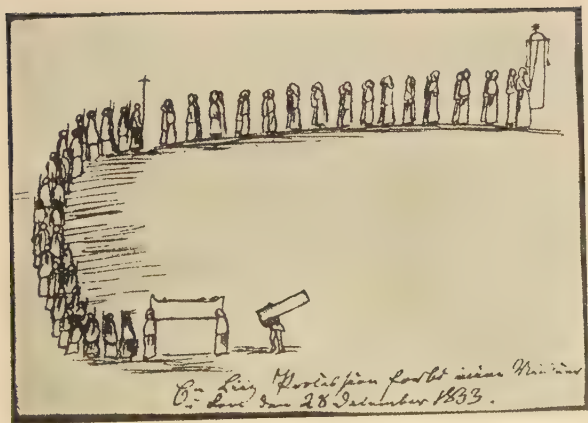 En Liig Procession forbi mine Vinduer
i Rom den 28 December 1833.